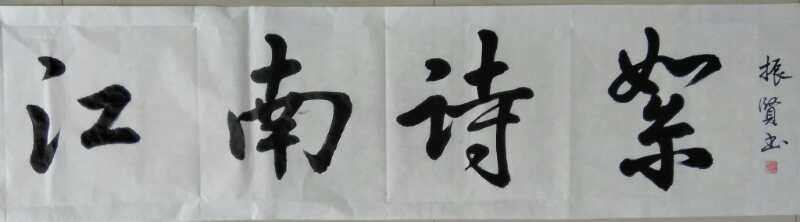 江南诗絮
振贤书